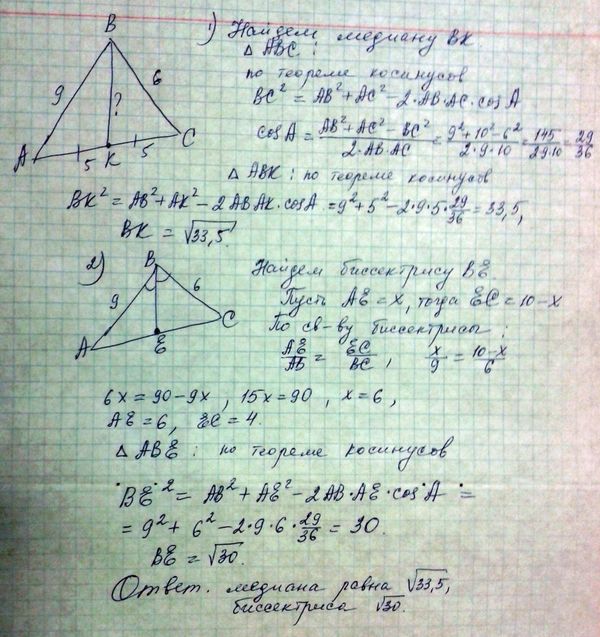 1) Найдем медиану BK.
△ ABC:
по теореме косинусов
BC² = AB² + AC² - 2·AB·AC·cos A
cos A = (AB² + AC² - BC²)/(2·AB·AC) = (9² + 10² - 6²)/(2·9·10) = 145/(2·9·10) = 29/36
△ ABK: по теореме косинусов
BK² = AB² + AK² - 2AB·AK·cos A = 9² + 5² - 2·9·5·29/36 = 33,5,
BK = √33,5.
B
9
6
?
A
5
K
5
C
2)
B
9
6
A
E
C
Найдем биссектрису BE.
Пусть AE = x, тогда EC = 10-x
По св-ву биссектрисы:
AE/AB = EC/BC, x/9 = (10-x)/6
6x = 90-9x, 15x = 90, x = 6,
AE = 6, EC = 4.
△ ABE: по теореме косинусов
BE² = AB² + AE² - 2AB·AE·cos A =
= 9² + 6² - 2·9·6·29/36 = 30.
BE = √30.
Ответ. медиана равна √33,5,
биссектриса √30.